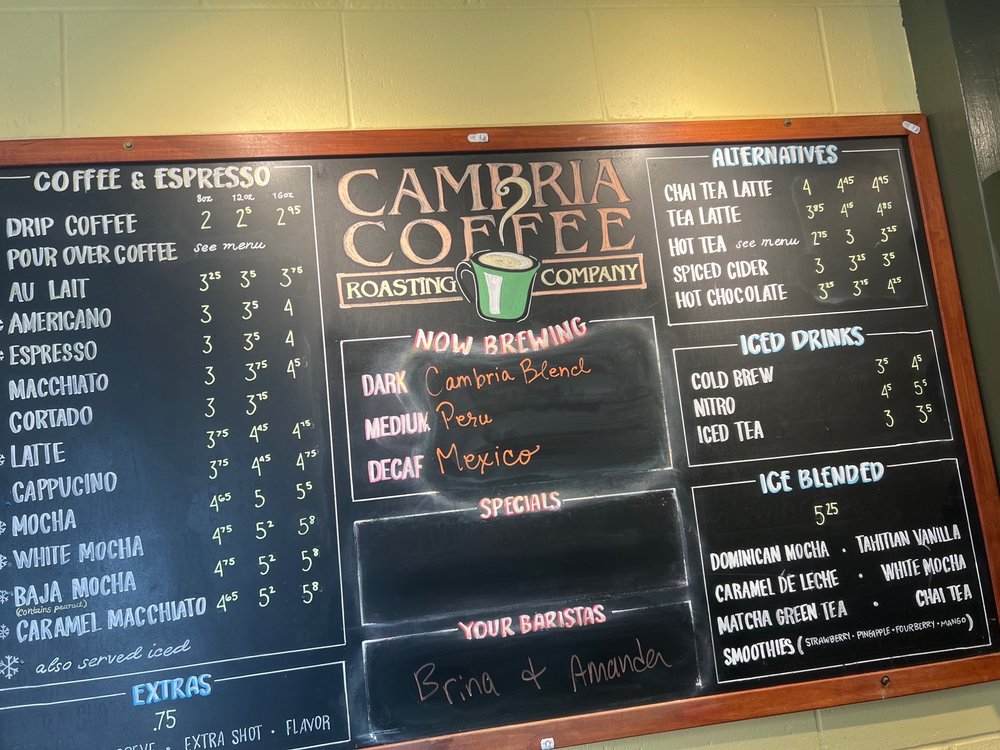 COFFEE & ESPRESSO
8oz 12oz 16oz
DRIP COFFEE 2 2⁵ 2⁹⁵
POUR OVER COFFEE see menu
AU LAIT 3²⁵ 3⁵ 3⁷⁵
* AMERICANO 3 3⁵ 4
* ESPRESSO 3 3⁵ 4
MACCHIATO 3 3⁷⁵ 4⁵
CORTADO 3 3⁷⁵
* LATTE 3⁷⁵ 4⁴⁵ 4⁷⁵
CAPPUCINO 3⁷⁵ 4⁴⁵ 4⁷⁵
* MOCHA 4⁶⁵ 5 5⁵
* WHITE MOCHA 4⁷⁵ 5² 5⁸
* BAJA MOCHA 4⁷⁵ 5² 5⁸
(contains peanut)
* CARAMEL MACCHIATO 4⁶⁵ 5² 5⁸
* also served iced
EXTRAS
.75
• EXTRA SHOT • FLAVOR
CAMBRIA
COFFEE
ROASTING COMPANY
NOW BREWING
DARK Cambria Blend
MEDIUM Peru
DECAF Mexico
SPECIALS
YOUR BARISTAS
Brina & Amanda
ALTERNATIVES
CHAI TEA LATTE 4 4⁴⁵ 4⁹⁵
TEA LATTE 3⁸⁵ 4¹⁵ 4⁸⁵
HOT TEA see menu 2⁷⁵ 3 3²⁵
SPICED CIDER 3 3²⁵ 3⁵
HOT CHOCOLATE 3²⁵ 3⁷⁵ 4²⁵
ICED DRINKS
COLD BREW 3⁵ 4⁵
NITRO 4⁵ 5⁵
ICED TEA 3 3⁵
ICE BLENDED
5²⁵
DOMINICAN MOCHA • TAHITIAN VANILLA
CARAMEL DE LECHE • WHITE MOCHA
MATCHA GREEN TEA • CHAI TEA
SMOOTHIES (STRAWBERRY • PINEAPPLE • FOURBERRY • MANGO)